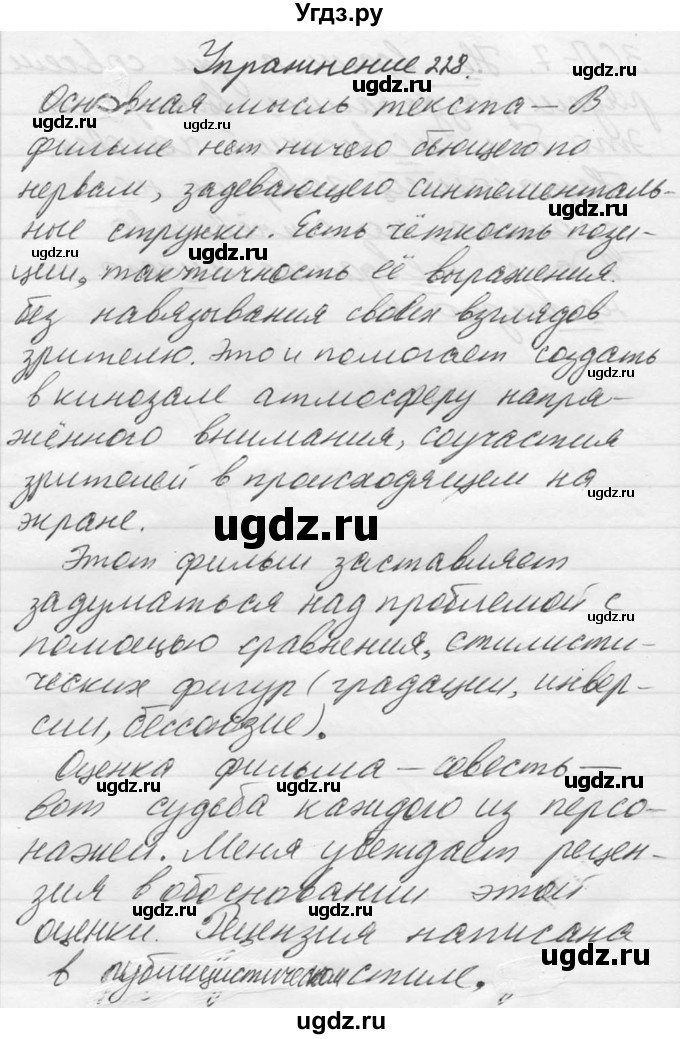 Угдз.ру
Упражнение 228.
Основная мысль текста – В
фильме нет ничего бьющего по
нервам, задевающего синтементаль-
ные струнки. Есть чёткость пози-
ции, тактичность её выражения.
без навязывания своих взглядов
зрителю. Это и помогает создать
в кинозале атмосферу напря-
жённого внимания, соучастия
зрителей в происходящем на
экране.
Этот фильм заставляет
задуматься над проблемой с
помощью сравнения, стилисти-
ческих фигур (градации, инвер-
сии, бессоюзие).
Оценка фильма – совесть –
вот судьба каждого из персо-
нажей. Меня убеждает рецен-
зия в обосновании этой
оценки. Рецензия написана
в публицистическом стиле.
ugdz.ru